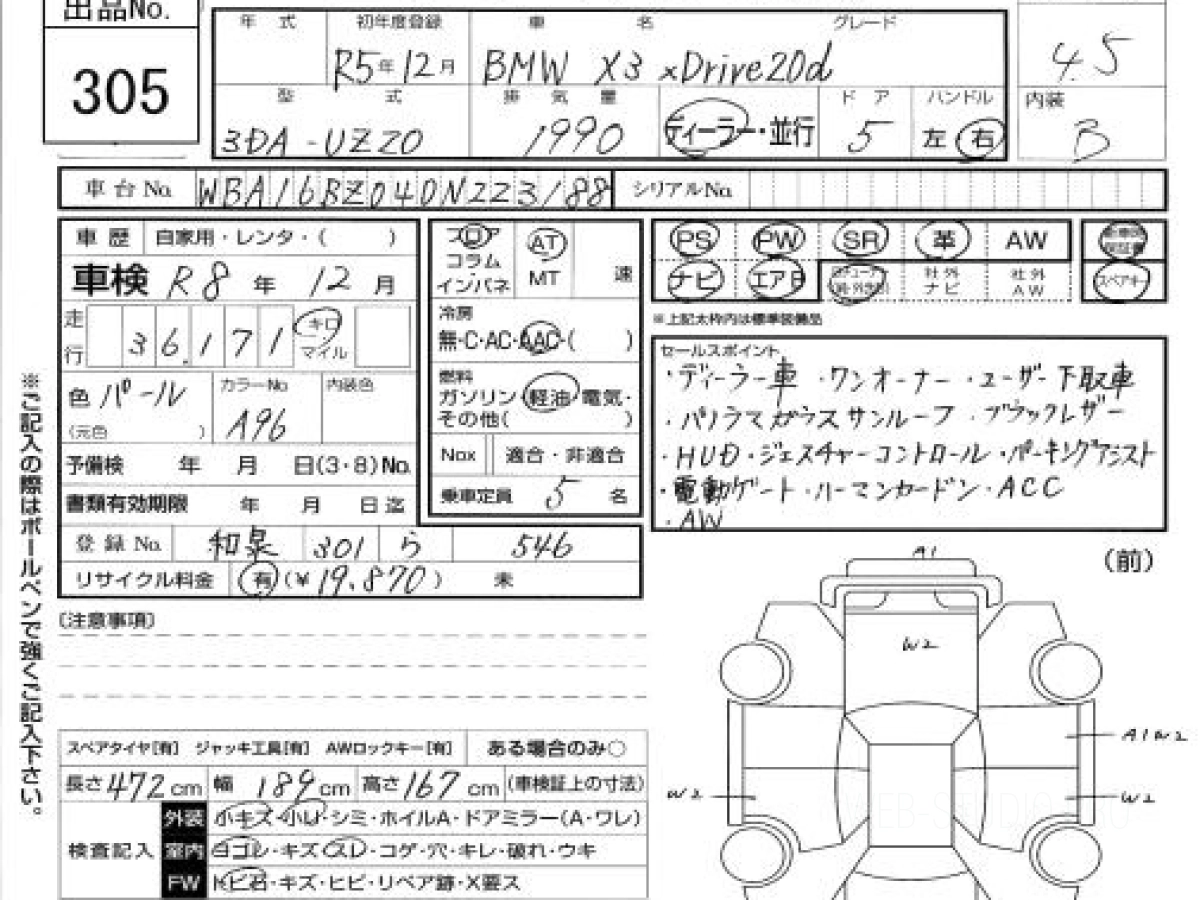 出品No.
305
年 式 初年度登録 車 名 グレード
R5年12月 BMW X3 xDrive20d
4.5
型 式 排 気 量 ド ア ハンドル 内装
3DA-UZ20 1990 ディーラー・並行 5 左 右 B
車台No. WBA16BZ040N223188 シリアルNo.
車 歴 自家用・レンタ・( )
車検 R8年 12月
走行 36,171 キロ マイル
色 パール カラーNo. A96 内装色
(元色 )
予備検 年 月 日(3・8)No.
書類有効期限 年 月 日迄
登録No. 和泉 301 ら 546
リサイクル料金 有(¥19,870) 未
フロア AT
コラム MT 速
インパネ
冷房
無・C・AC・AAC・( )
燃料
ガソリン・軽油・電気・
その他( )
Nox 適合・非適合
乗車定員 5 名
PS PW SR 革 AW
ナビ エアB 社外ナビ 社外AW スペアキー
※上記太枠内は標準装備品
セールスポイント
・ディーラー車 ・ワンオーナー ・ユーザー下取車
・パノラマガラスサンルーフ ・ブラックレザー
・HUD・ジェスチャーコントロール・パーキングアシスト
・電動ゲート・ハーマンカードン・ACC
・AW
※ご記入の際はボールペンで強くご記入下さい。
(注意事項)
スペアタイヤ[有] ジャッキ工具[有] AWロックキー[有] ある場合のみ○
長さ472cm 幅 189cm 高さ167cm (車検証上の寸法)
検査記入
外装 小キズ・小U・シミ・ホイルA・ドアミラー(A・ワレ)
室内 ヨゴレ・キズ・スレ・コゲ・穴・キレ・破れ・ウキ
FW トビ石・キズ・ヒビ・リペア跡・X要ス
A1 (前)
W2
A1W2
W2 W2
WEB-STUDIO.RU